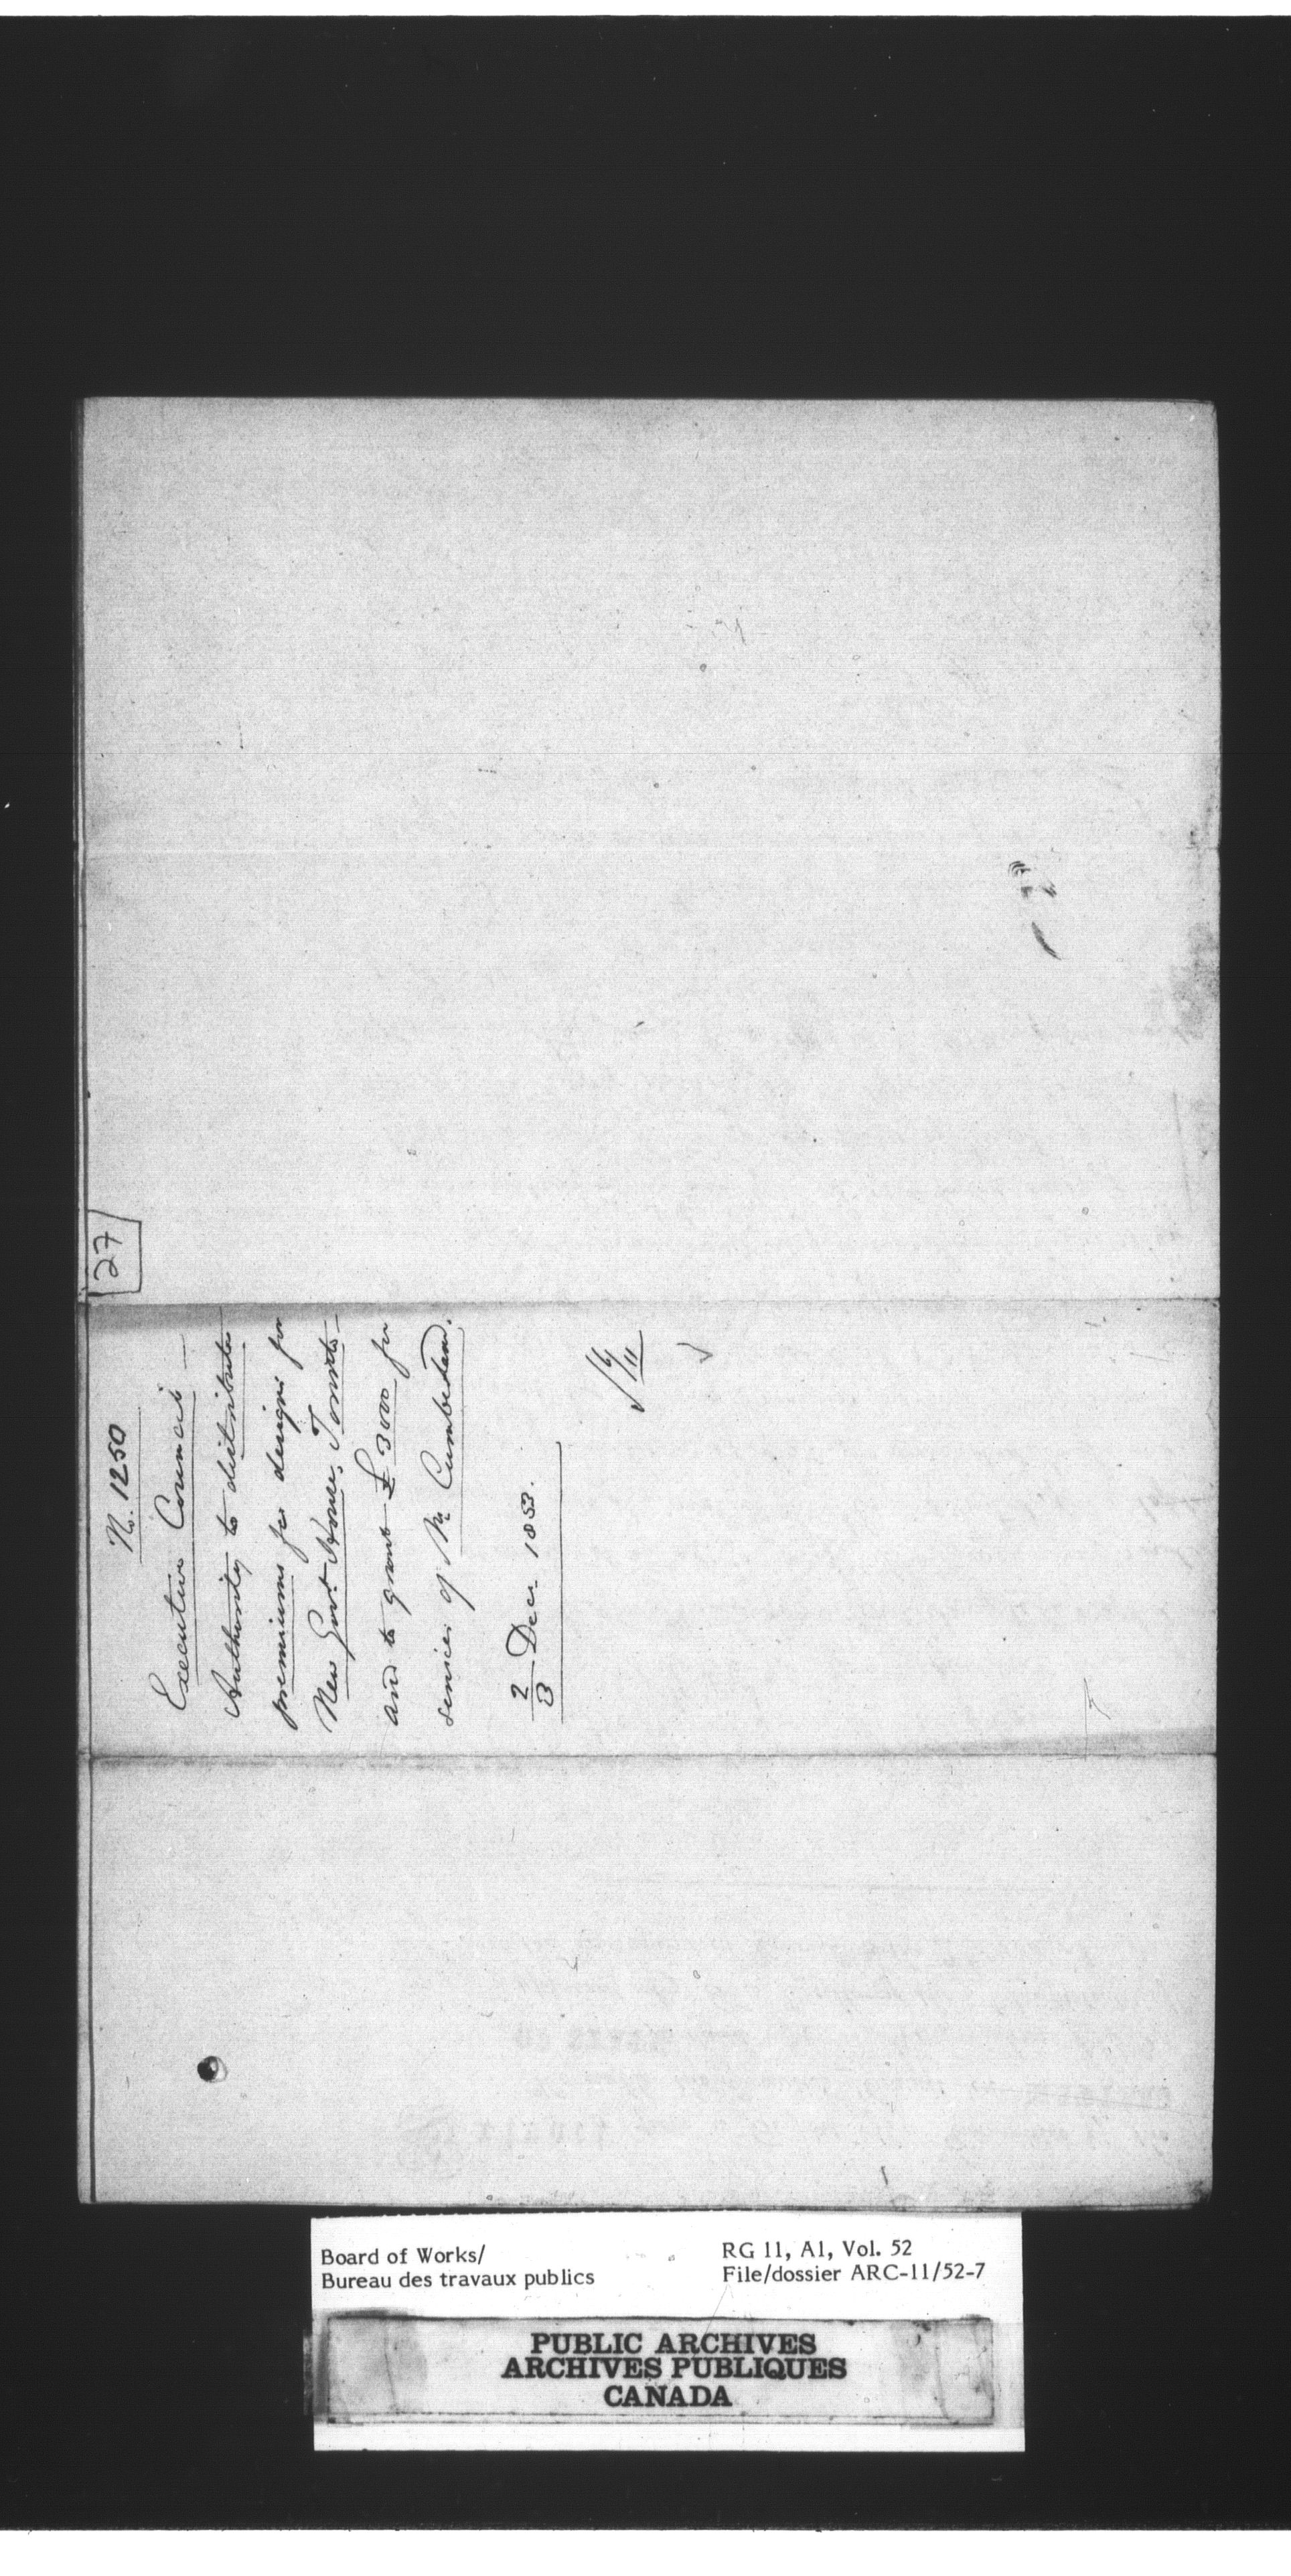 27
No. 1250
Executive Council —
Authority to distribute
premiums for designs for
New Govt. House, Toronto —
and to grant £3000 for
services of Mr Cumberland.
2/3 Decr. 1853.
11
Board of Works/
Bureau des travaux publics
RG 11, A1, Vol. 52
File/dossier ARC-11/52-7
PUBLIC ARCHIVES
ARCHIVES PUBLIQUES
CANADA